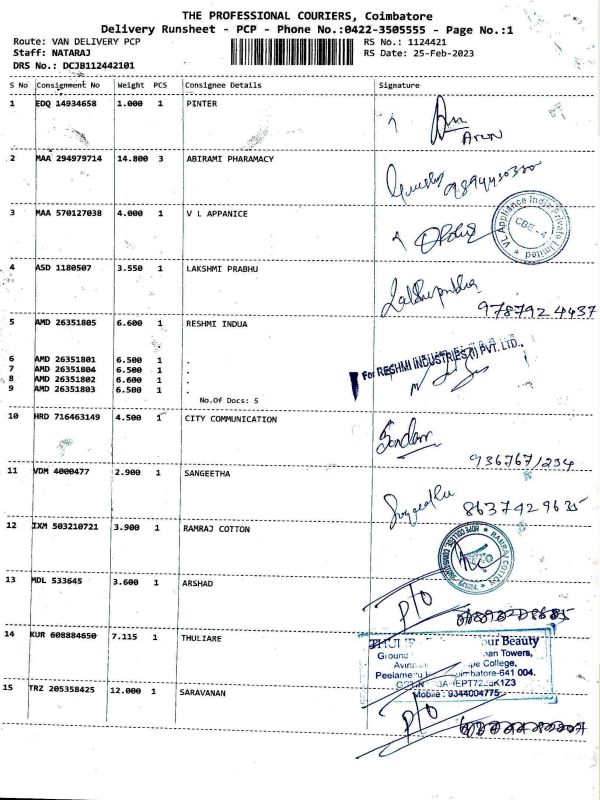 THE PROFESSIONAL COURIERS, Coimbatore
Delivery Runsheet - PCP - Phone No.:0422-3505555 - Page No.:1
Route: VAN DELIVERY PCP RS No.: 1124421
Staff: NATARAJ RS Date: 25-Feb-2023
DRS No.: DCJB112442101
S No Consignment No Weight PCS Consignee Details Signature
1 EDQ 14934658 1.000 1 PINTER
ARUN
2 MAA 294979714 14.800 3 ABIRAMI PHARAMACY
3 MAA 570127038 4.000 1 V L APPANICE
VL Appliance India Private Limited
CBE - 4
4 ASD 1180507 3.550 1 LAKSHMI PRABHU
9787924437
5 AMD 26351805 6.600 1 RESHMI INDUA
For RESHMI INDUSTRIES (I) PVT. LTD.,
6 AMD 26351801 6.500 1 .
7 AMD 26351804 6.500 1 .
8 AMD 26351802 6.600 1 .
9 AMD 26351803 6.500 1 .
No.Of Docs: 5
10 HRD 716463149 4.500 1 CITY COMMUNICATION
9367671234
11 VDM 4000477 2.900 1 SANGEETHA
8637429635
12 IXM 503210721 3.900 1 RAMRAJ COTTON
RAMRAJ COTTON
HOPE COLLEGE
13 MDL 533645 3.600 1 ARSHAD
P/O
14 KUR 608884650 7.115 1 THULIARE
our Beauty
Ground an Towers,
pe College,
imbatore-641 004.
Mobile : 9344004775
15 TRZ 205358425 12.000 1 SARAVANAN
P/O